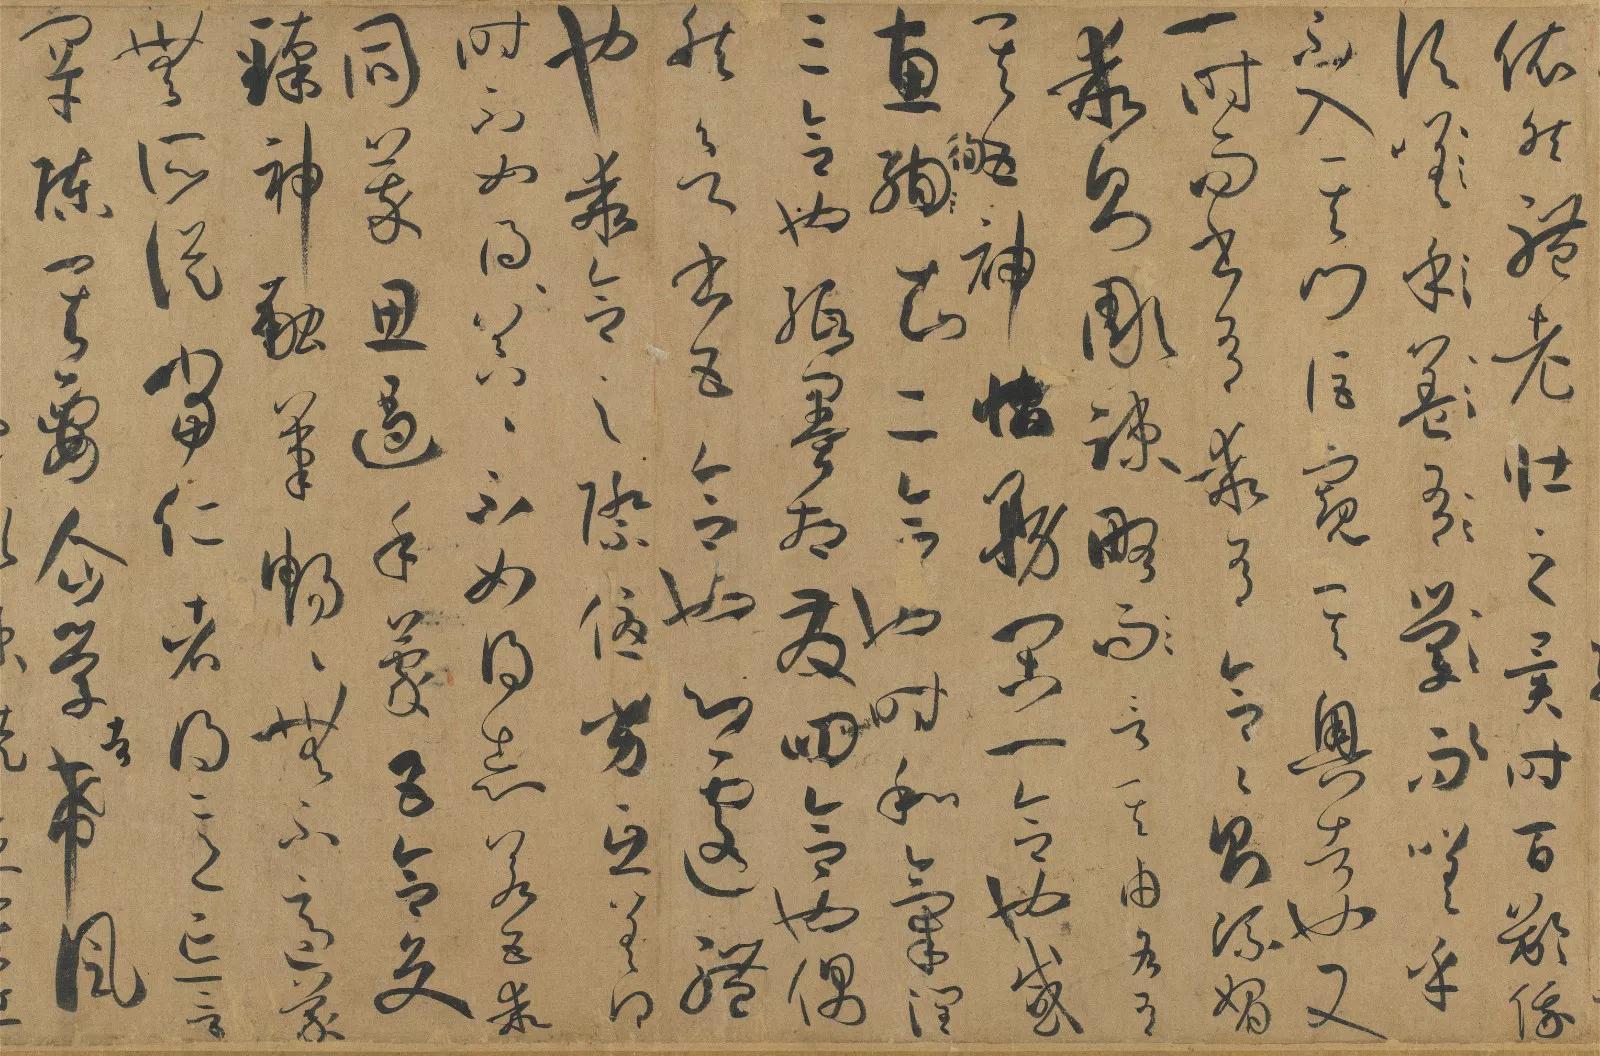 依然體老壯之異時百齡俄
頃嗟乎蓋有學而嗟乎
不入其門詎窺其奧者也又
一時而書有乖有合〻則流媚
乖則彫疎略而言其由各有
其五神怡務閑一合也感
惠徇知二合也時和氣潤
三合也紙墨相發四合也偶
然欲書五合也心遽體
也乖合之際優劣互差得
時不如得器〻不如得志若五乖
同萃思遏手蒙五合交
臻神融筆暢〻無不適蒙
無所從當仁者得意忘言
罕陳其要企學者希風